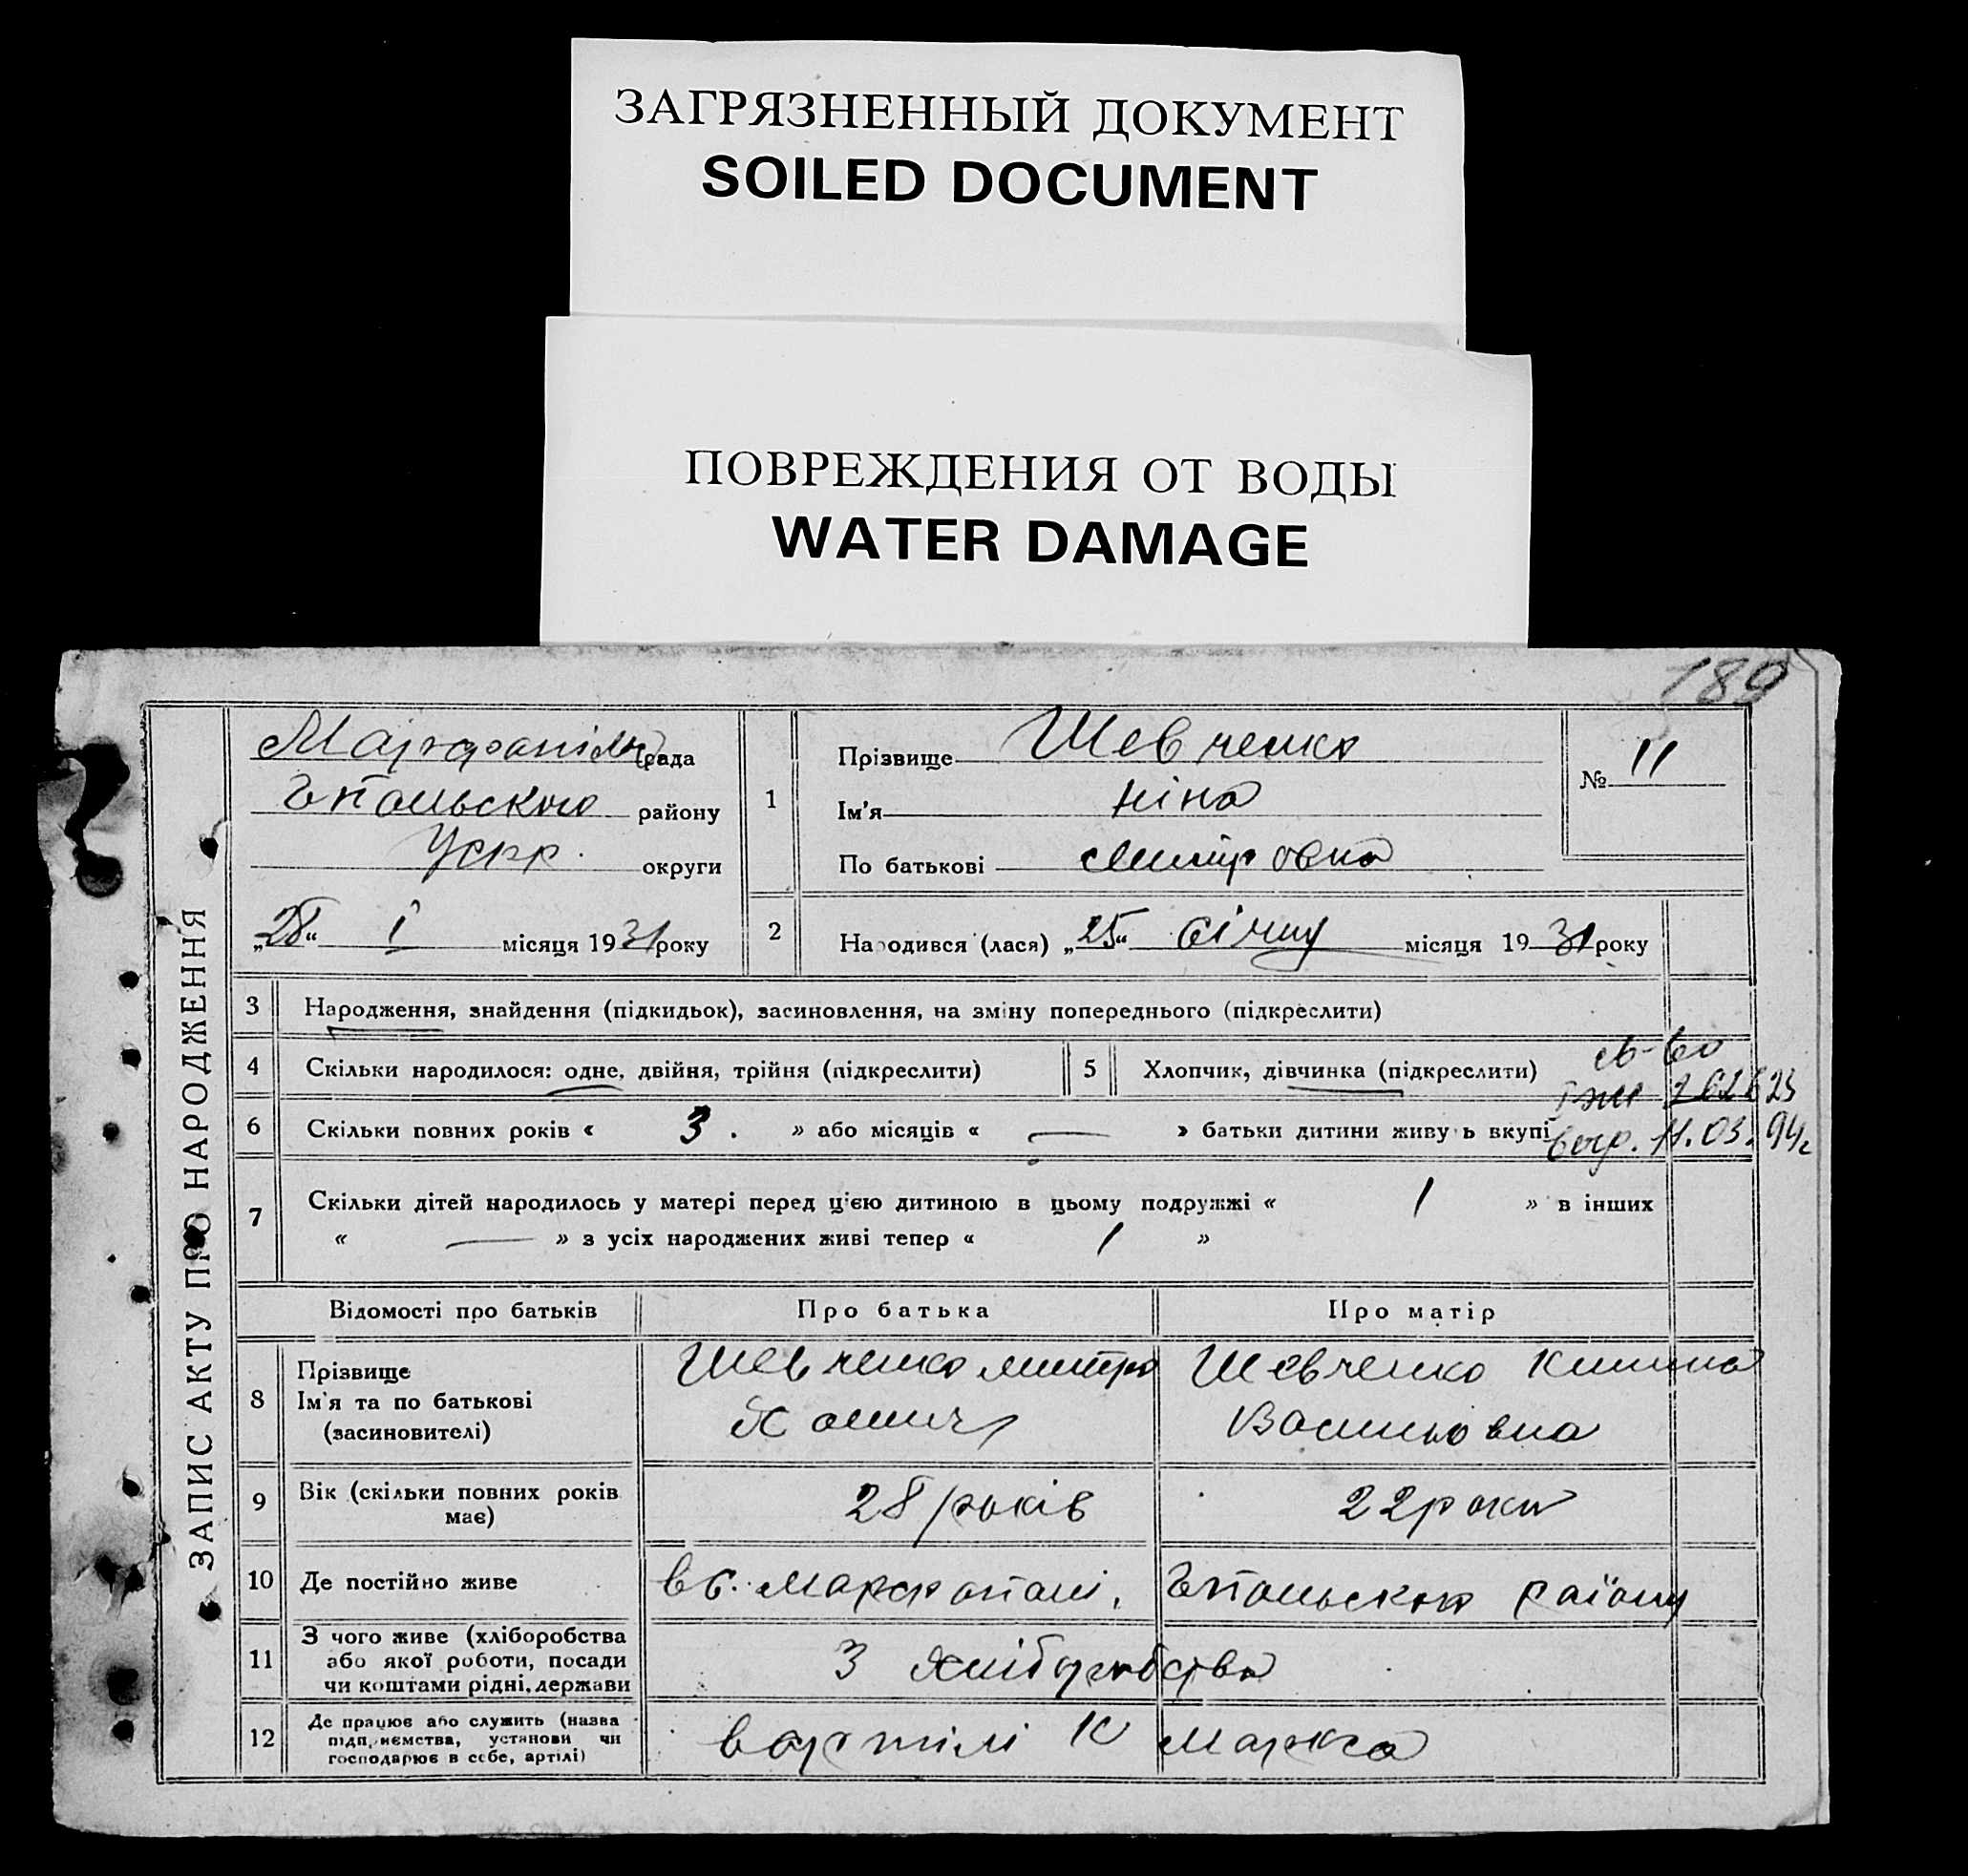 ЗАГРЯЗНЕННЫЙ ДОКУМЕНТ
SOILED DOCUMENT
ПОВРЕЖДЕНИЯ ОТ ВОДЫ
WATER DAMAGE
189
ЗАПИС АКТУ ПРО НАРОДЖЕННЯ
рада
району
Усрр. округи
„28“ І місяця 1931 року
1
Прізвище Шевченко
Ім'я Ніна
По батькові Митровна
№ 11
2 Народився (лася) „25“ січня місяця 1931 року
3 Народження, знайдення (підкидьок), засиновлення, на зміну попереднього (підкреслити)
4 Скільки народилося: одне, двійня, трійня (підкреслити) 5 Хлопчик, дівчинка (підкреслити)
св-во
262623
11.03.94г
6 Скільки повних років « 3. » або місяців « — » батьки дитини живуть вкупі
7 Скільки дітей народилось у матері перед цією дитиною в цьому подружжі « 1 » в інших
« — » з усіх народжених живі тепер « 1 »
Відомості про батьків Про батька Про матір
8 Прізвище
Ім'я та по батькові
(засиновителі)
Шевченко Митро
Шевченко
Васильовна
9 Вік (скільки повних років
має)
28 років 22 роки
10 Де постійно живе в с. району
11 З чого живе (хліборобства
або якої роботи, посади
чи коштами рідні, держави
З хліборобства
12 Де працює або служить (назва
підприємства, установи чи
господарює в себе, артілі)
в артілі К Маркса